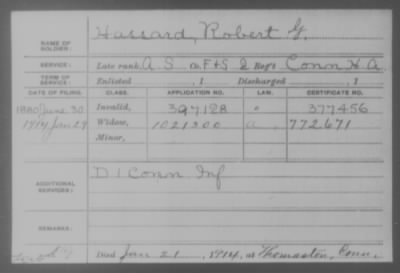 NAME OF SOLDIER: Hassard, Robert G.
SERVICE: Late rank, A S Co. F+S 2 Reg't Conn H A
TERM OF SERVICE: Enlisted , 1 Discharged , 1
DATE OF FILING. CLASS. APPLICATION NO. LAW. CERTIFICATE NO.
1880 June 30 Invalid, 397128 " 377456
1914 Jan 29 Widow, 1021300 a, 772671
Minor,
ADDITIONAL SERVICES: D 1 Conn Inf
REMARKS:
Died Jan 21, 1914, at Thomaston, Conn.